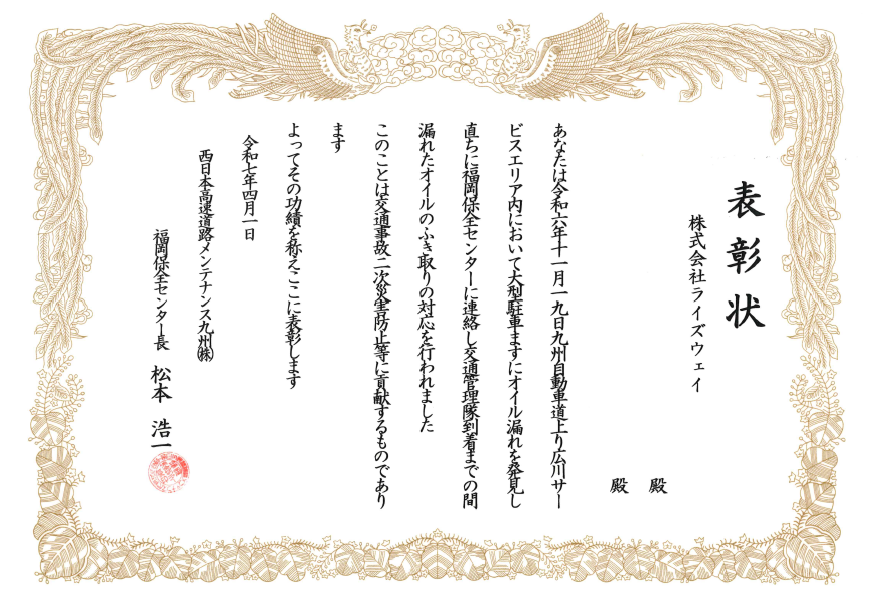 表彰状
株式会社ライズウェイ
殿
殿
あなたは令和六年十一月一九日九州自動車道上り広川サー
ビスエリア内において大型駐車ますにオイル漏れを発見し
直ちに福岡保全センターに連絡し交通管理隊到着までの間
漏れたオイルのふき取りの対応を行われました
このことは交通事故二次災害防止等に貢献するものであり
ます
よってその功績を称えここに表彰します
令和七年四月一日
西日本高速道路メンテナンス九州㈱
福岡保全センター長 松本 浩一